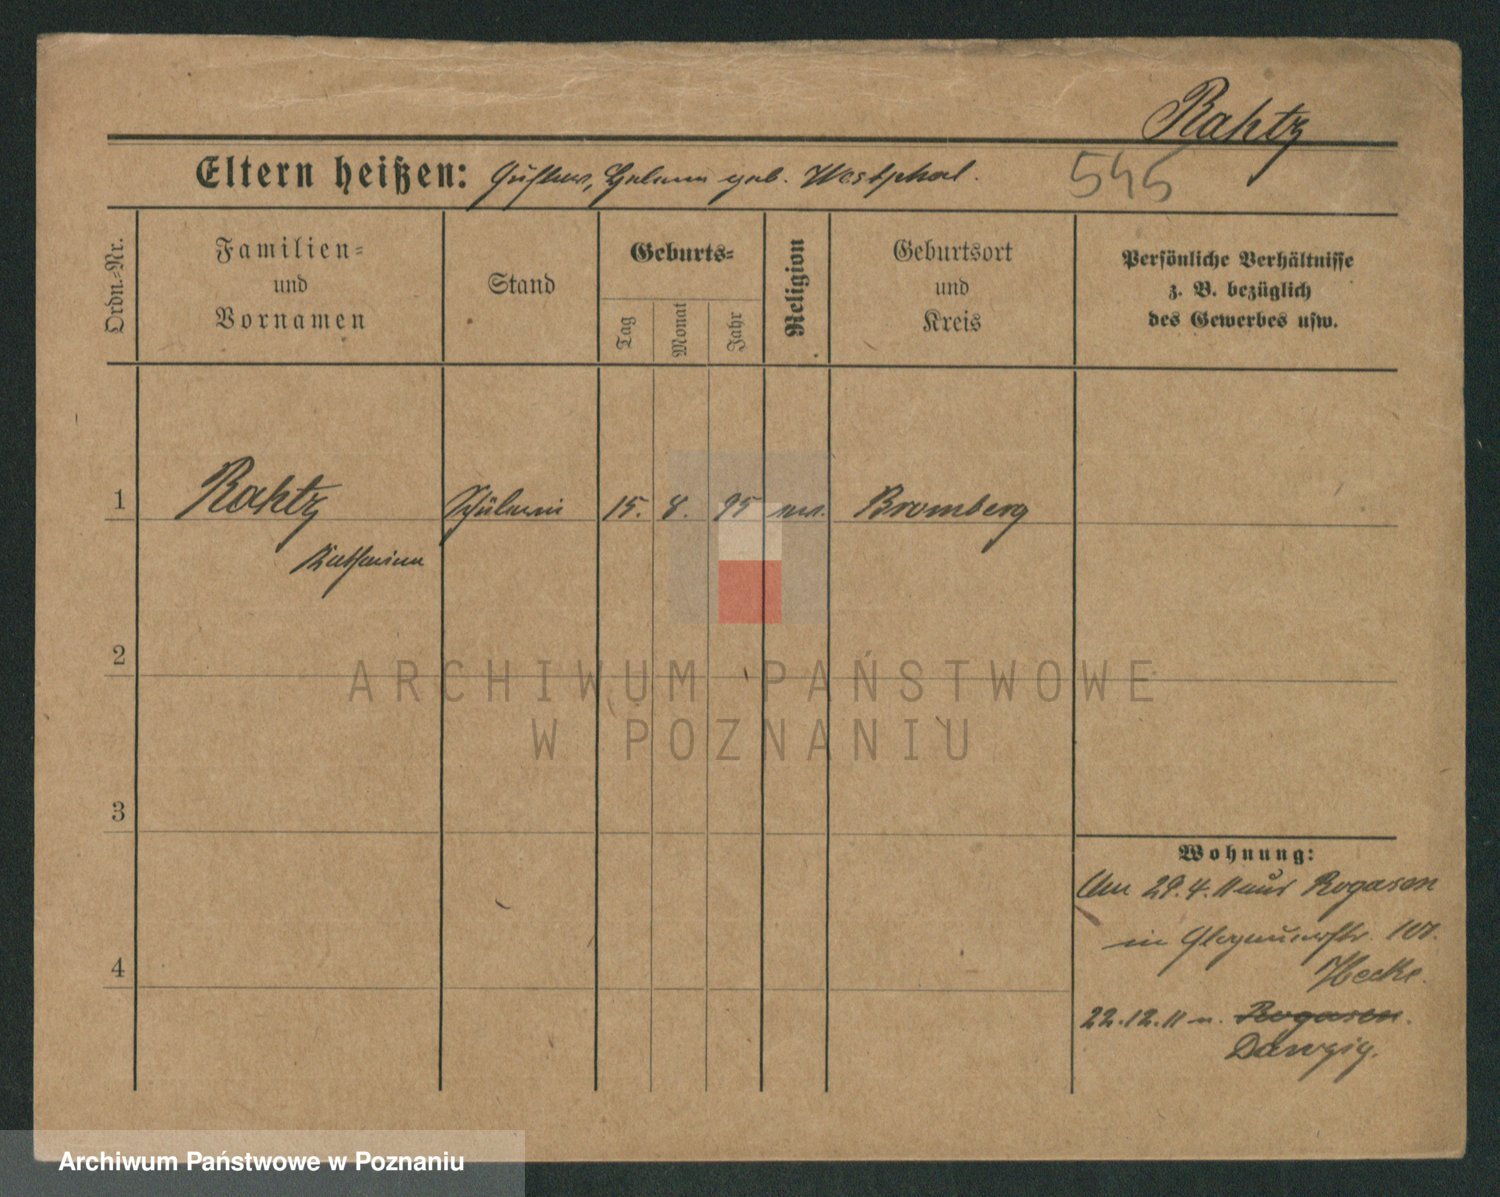 Rahtz
Eltern heißen: Gustav, Helene geb. Westphal.
545
Ordn.=Nr.
Familien=
und
Vornamen
Stand
Geburts=
Tag
Monat
Jahr
Religion
Geburtsort
und
Kreis
Persönliche Verhältnisse
z. B. bezüglich
des Gewerbes usw.
1 Rahtz Schülerin 15. 8. 95 Bromberg
Katharina
2
ARCHIWUM PAŃSTWOWE
W POZNANIU
3
Wohnung:
Am 29.4.11 aus Rogasen
in Glogauerstr. 107.
4
Hecke.
22.12.11 n. Rogasen.
Danzig.
Archiwum Państwowe w Poznaniu